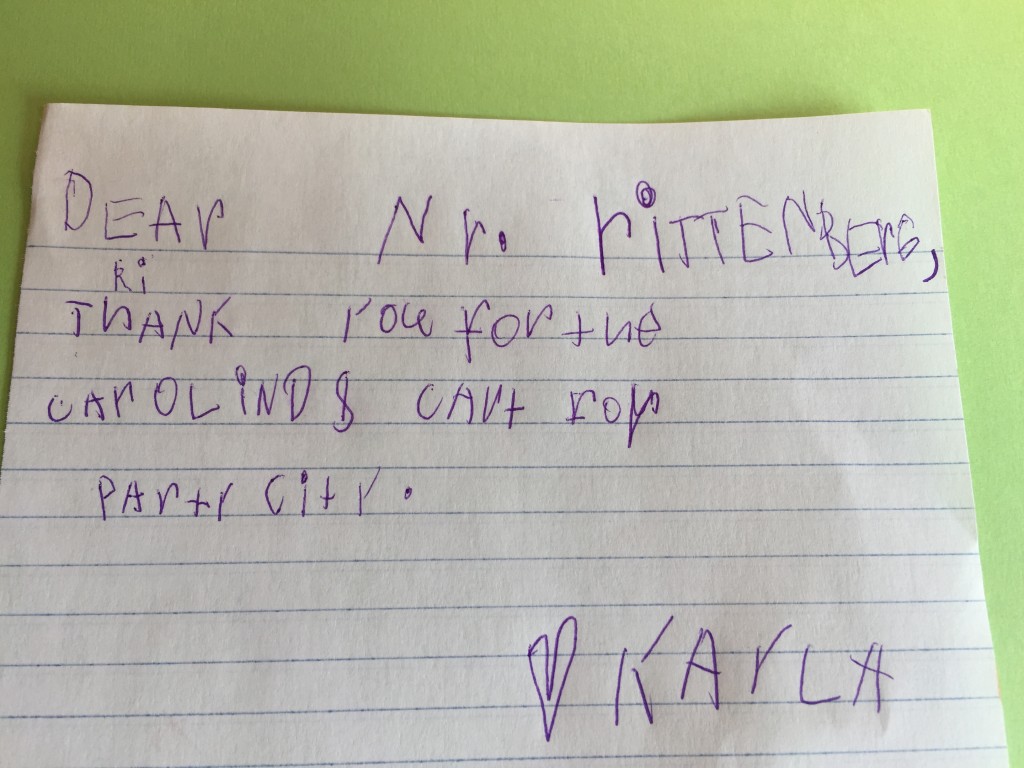 DEAr Nr. riTTENBErG,
ki
THANK you for the
CArOLiND8 CArt roy
PArty City.
♥ KArLA